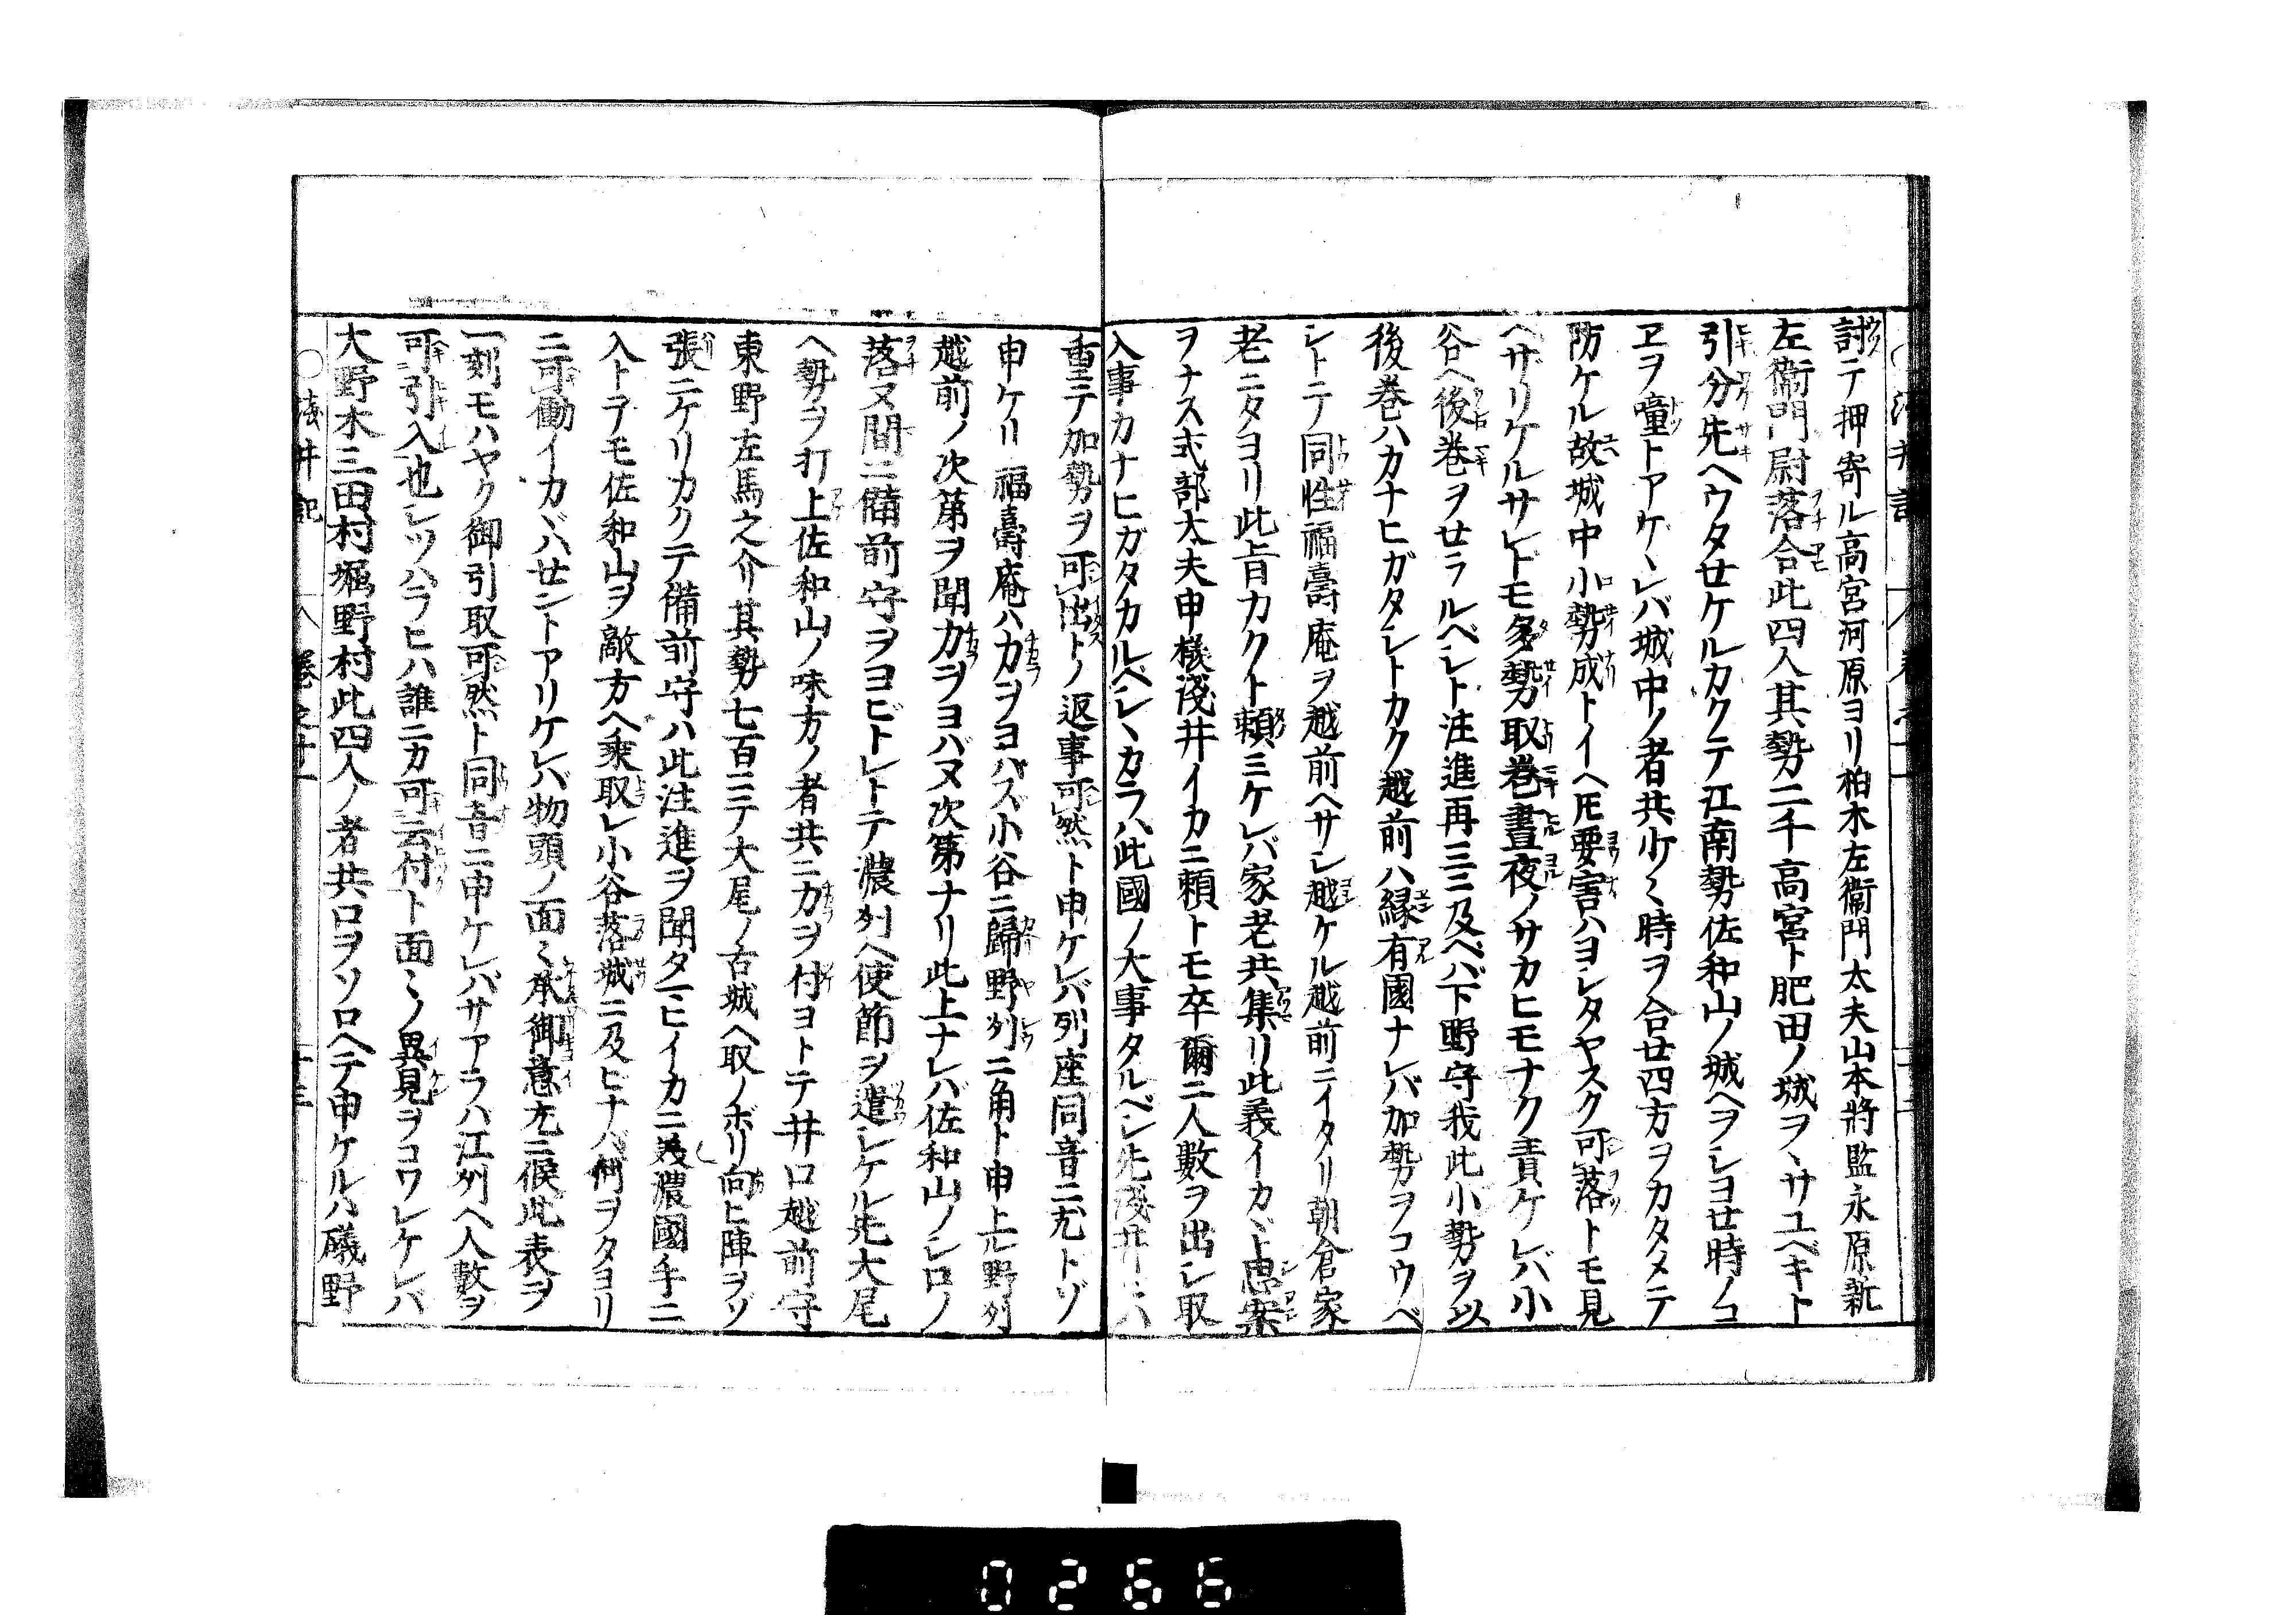 討テ押寄ル高宮河原ヨリ柏木左衞門太夫山本將監永原新
左衞門尉落合此四人其勢二千高宮ト肥田ノ城ヲヽサユベキト
引分先ヘウタせケルカクテ江南勢佐和山ノ城ヘヲシヨせ時ノコ
ヱヲ噇トアケヽレバ城中ノ者共少〻時ヲ合せ四方ヲカタメテ
防ケル故城中小勢成トイヘ𪜈要害ハヨシタヤスク可落トモ見
ヘサリケルサレドモ多勢取巻晝夜ノサカヒモナク責ケレバ小
谷ヘ後巻ヲせラルベシト注進再三ニ及ベバ下野守我此小勢ヲ以
後巻ハカナヒガタシトカク越前ハ縁有國ナレバ加勢ヲコウベ
シトテ同性福壽庵ヲ越前ヘサシ越ケル越前ニイタリ朝倉家
老ニタヨリ此旨カクト頼ミケレバ家老共集リ此義イカヾト思案
ヲナス式部太夫申樣淺井イカニ頼トモ卒爾ニ人數ヲ出シ取
入事カナヒガタカルベシヽカラハ此國ノ大事タルベシ先淺井ニハ
重テ加勢ヲ可出トノ返事可然ト申ケレバ列座同音ニ尤トゾ
申ケリ福壽庵ハ力ヲヨバズ小谷ニ歸野列ニ角ト申上ル野列
越前ノ次第ヲ聞力ヲヨバヌ次第ナリ此上ナレバ佐和山ノシロノ
落ヌ間ニ備前守ヲヨビトレトテ濃列ヘ使節ヲ遣シケル先大尾
ヘ勢ヲ打上佐和山ノ味方ノ者共ニ力ヲ付ヨトテ井口越前守
東野左馬之介其勢七百ニテ大尾ノ古城ヘ取ノボリ向ヒ陣ヲゾ
張ニケリカクテ備前守ハ此注進ヲ聞タ一ヒイカニ美濃國手ニ
入トテモ佐和山ヲ敵方ヘ乘取レ小谷落城ニ及ヒナバ何ヲタヨリ
ニ可働イカヾハせントアリケレバ物頭ノ面〻承御意尤ニ候此表ヲ
一刻モハヤク御引取可然ト同音ニ申ケレバサアラハ江列ヘ人數ヲ
可引入也シツハラヒハ誰ニカ可云付ト面〻ノ異見ヲコワレケレバ
大野木三田村堀野村此四人ノ者共口ヲソロヘテ申ケルハ礒野
○淺井記　八　卷之廿一　十三